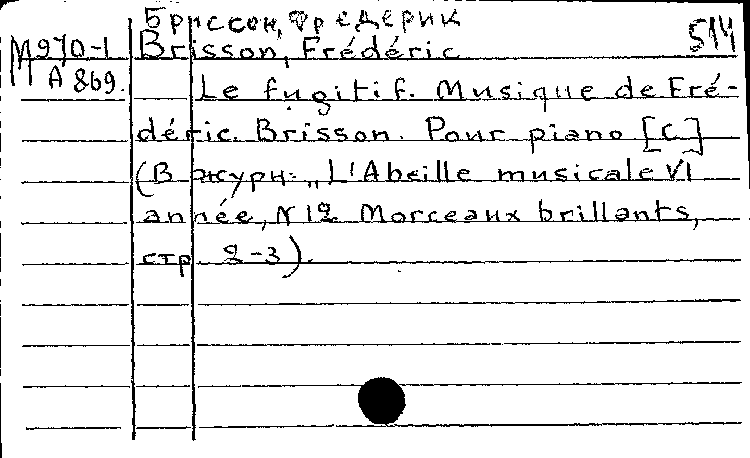 Бриссон, Фредерик
М970-1 Brisson, Frédéric 514
А 869. Le fugitif. Musique de Fré-
déric Brisson. Pour piano [C]
(В журн. „L'Abeille musicale VI
année, N 12 Morceaux brillants,
стр. 2-3).